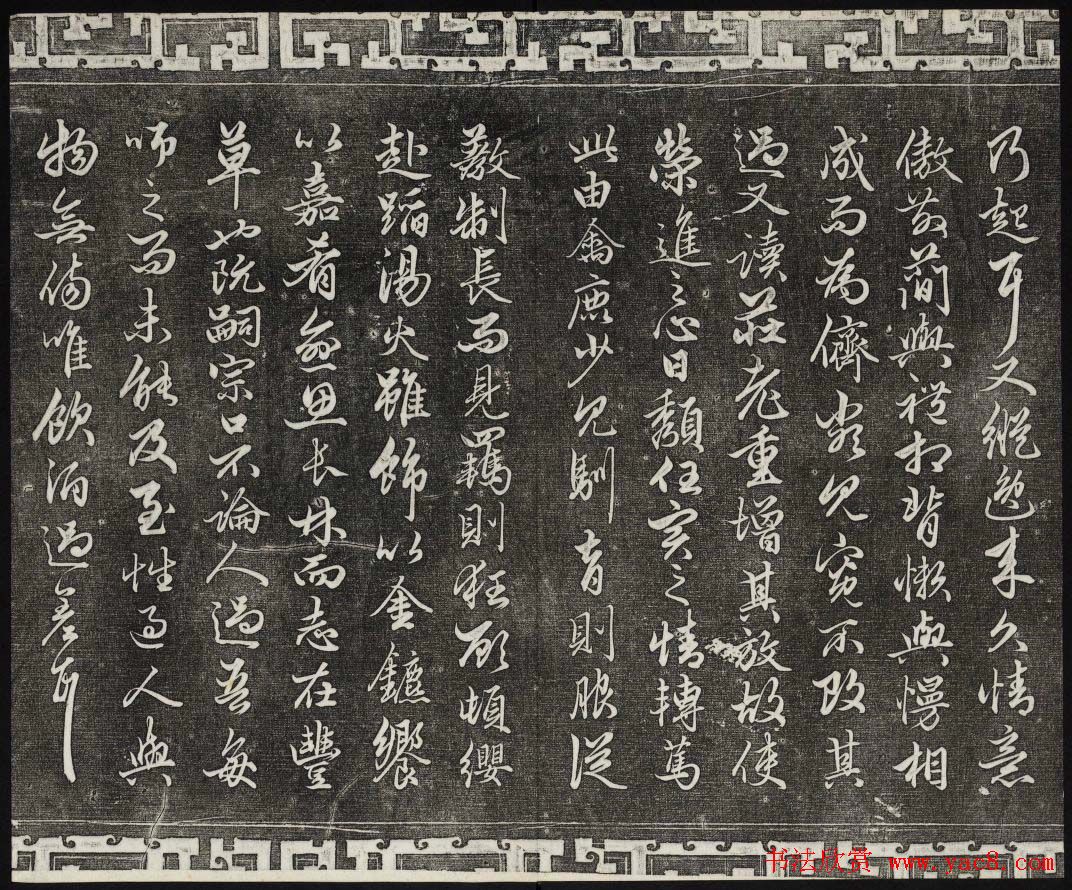 乃起耳又縱逸来久情意
傲散簡與禮相背懶與慢相
成而為儕類見寬不攻其
過又讀莊老重增其放故使
榮進之心日頹任實之情轉篤
此由禽鹿少見馴育則服從
教制長而見羈則狂顧頓纓
赴蹈湯火雖飾以金鑣饗
以嘉肴愈思長林而志在豐
草也阮嗣宗口不論人過吾每
師之而未能及至性過人與
物無傷唯飲酒過差耳
书法欣赏 www.yac8.com